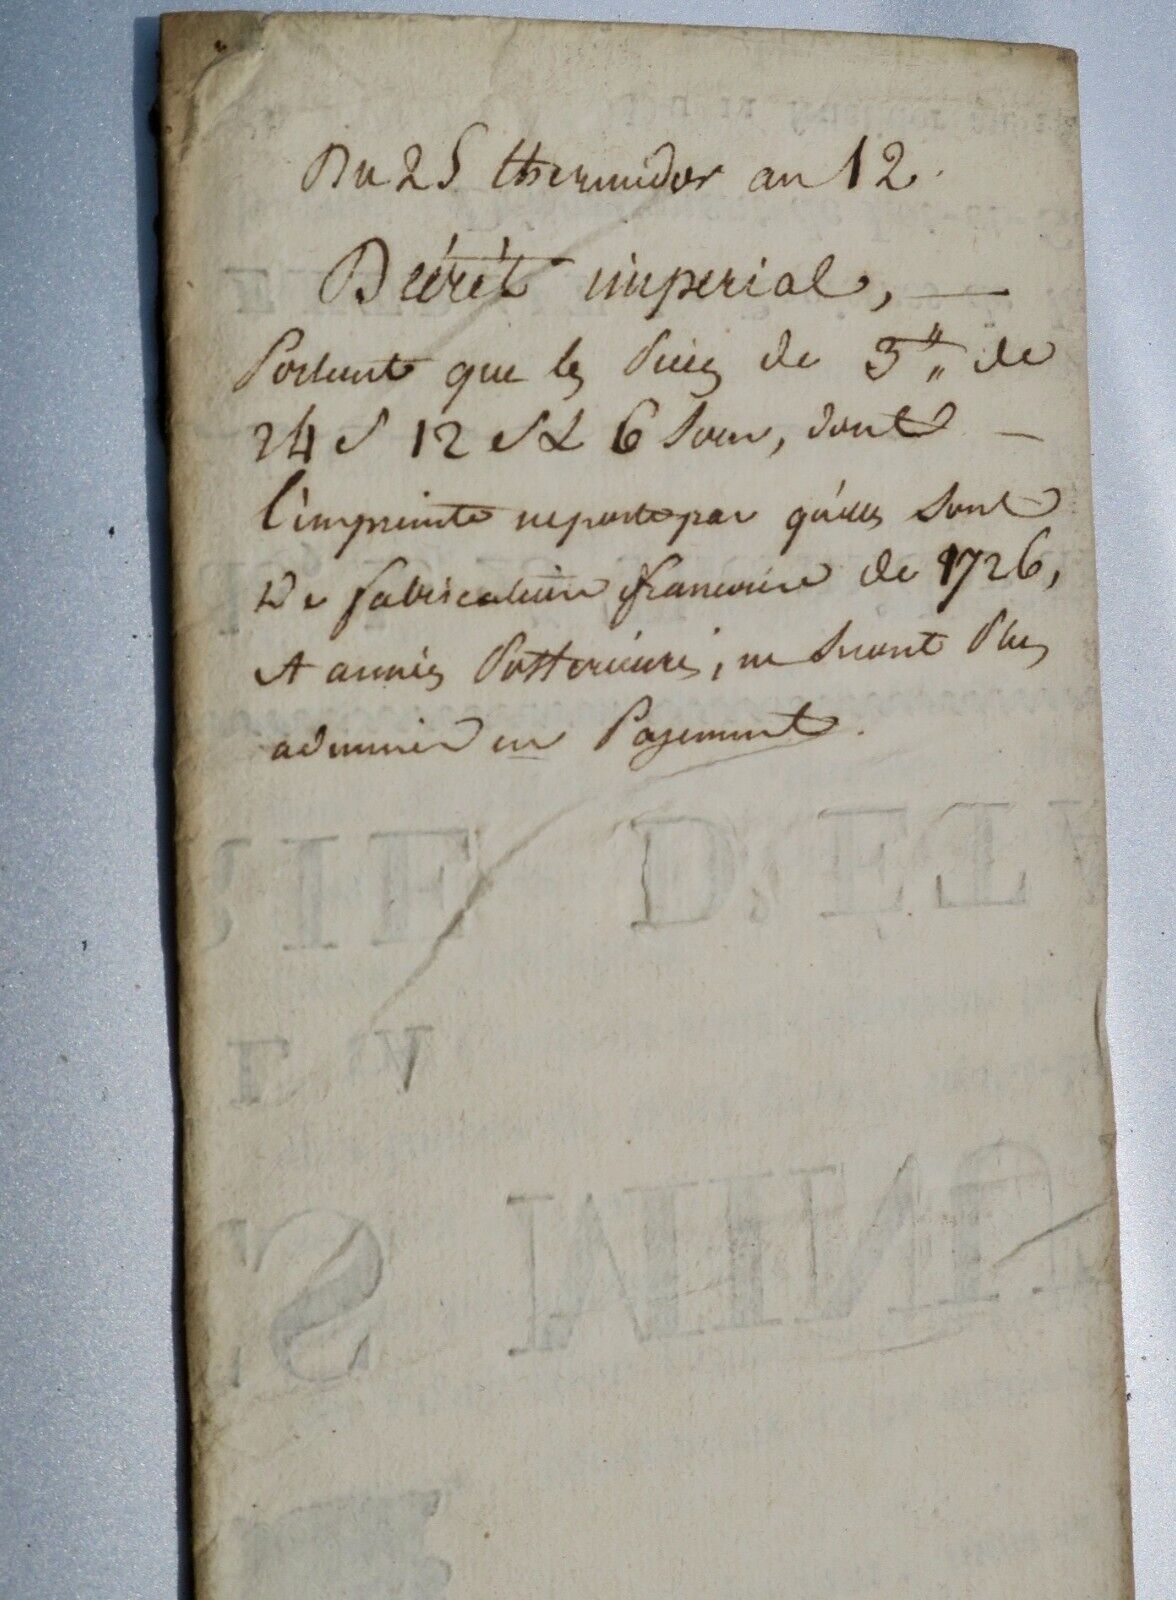 Du 25 thermidor an 12.
Décrèt imperial, —
Portant que les Pieces de 3" de
24 s 12 s & 6 Sous, dont —
l'empreinte ne porte pas qu'elles Sont
De fabrication francaise de 1726,
et années Postérieures, ne Seront Plus
admises en Payement.